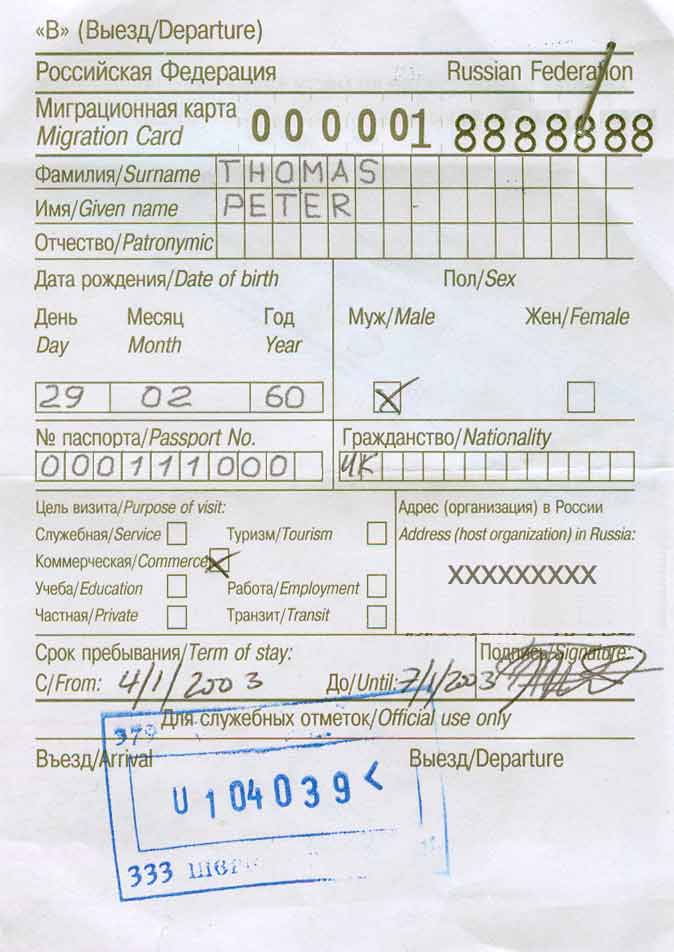 «В» (Выезд/Departure)
Российская Федерация Russian Federation
Миграционная карта
Migration Card 000001 8888888
Фамилия/Surname THOMAS
Имя/Given name PETER
Отчество/Patronymic
Дата рождения/Date of birth Пол/Sex
День Месяц Год Муж/Male Жен/Female
Day Month Year
29 02 60 X
№ паспорта/Passport No. Гражданство/Nationality
000111000 UK
Цель визита/Purpose of visit: Адрес (организация) в России
Служебная/Service Туризм/Tourism Address (host organization) in Russia:
Коммерческая/Commerce X
XXXXXXXXX
Учеба/Education Работа/Employment
Частная/Private Транзит/Transit
Срок пребывания/Term of stay: Подпись/Signature:
С/From: 4/1/2003 До/Until: 7/1/2003
Для служебных отметок/Official use only
Въезд/Arrival Выезд/Departure
379
U 104039 <
333 ШЕРЕ